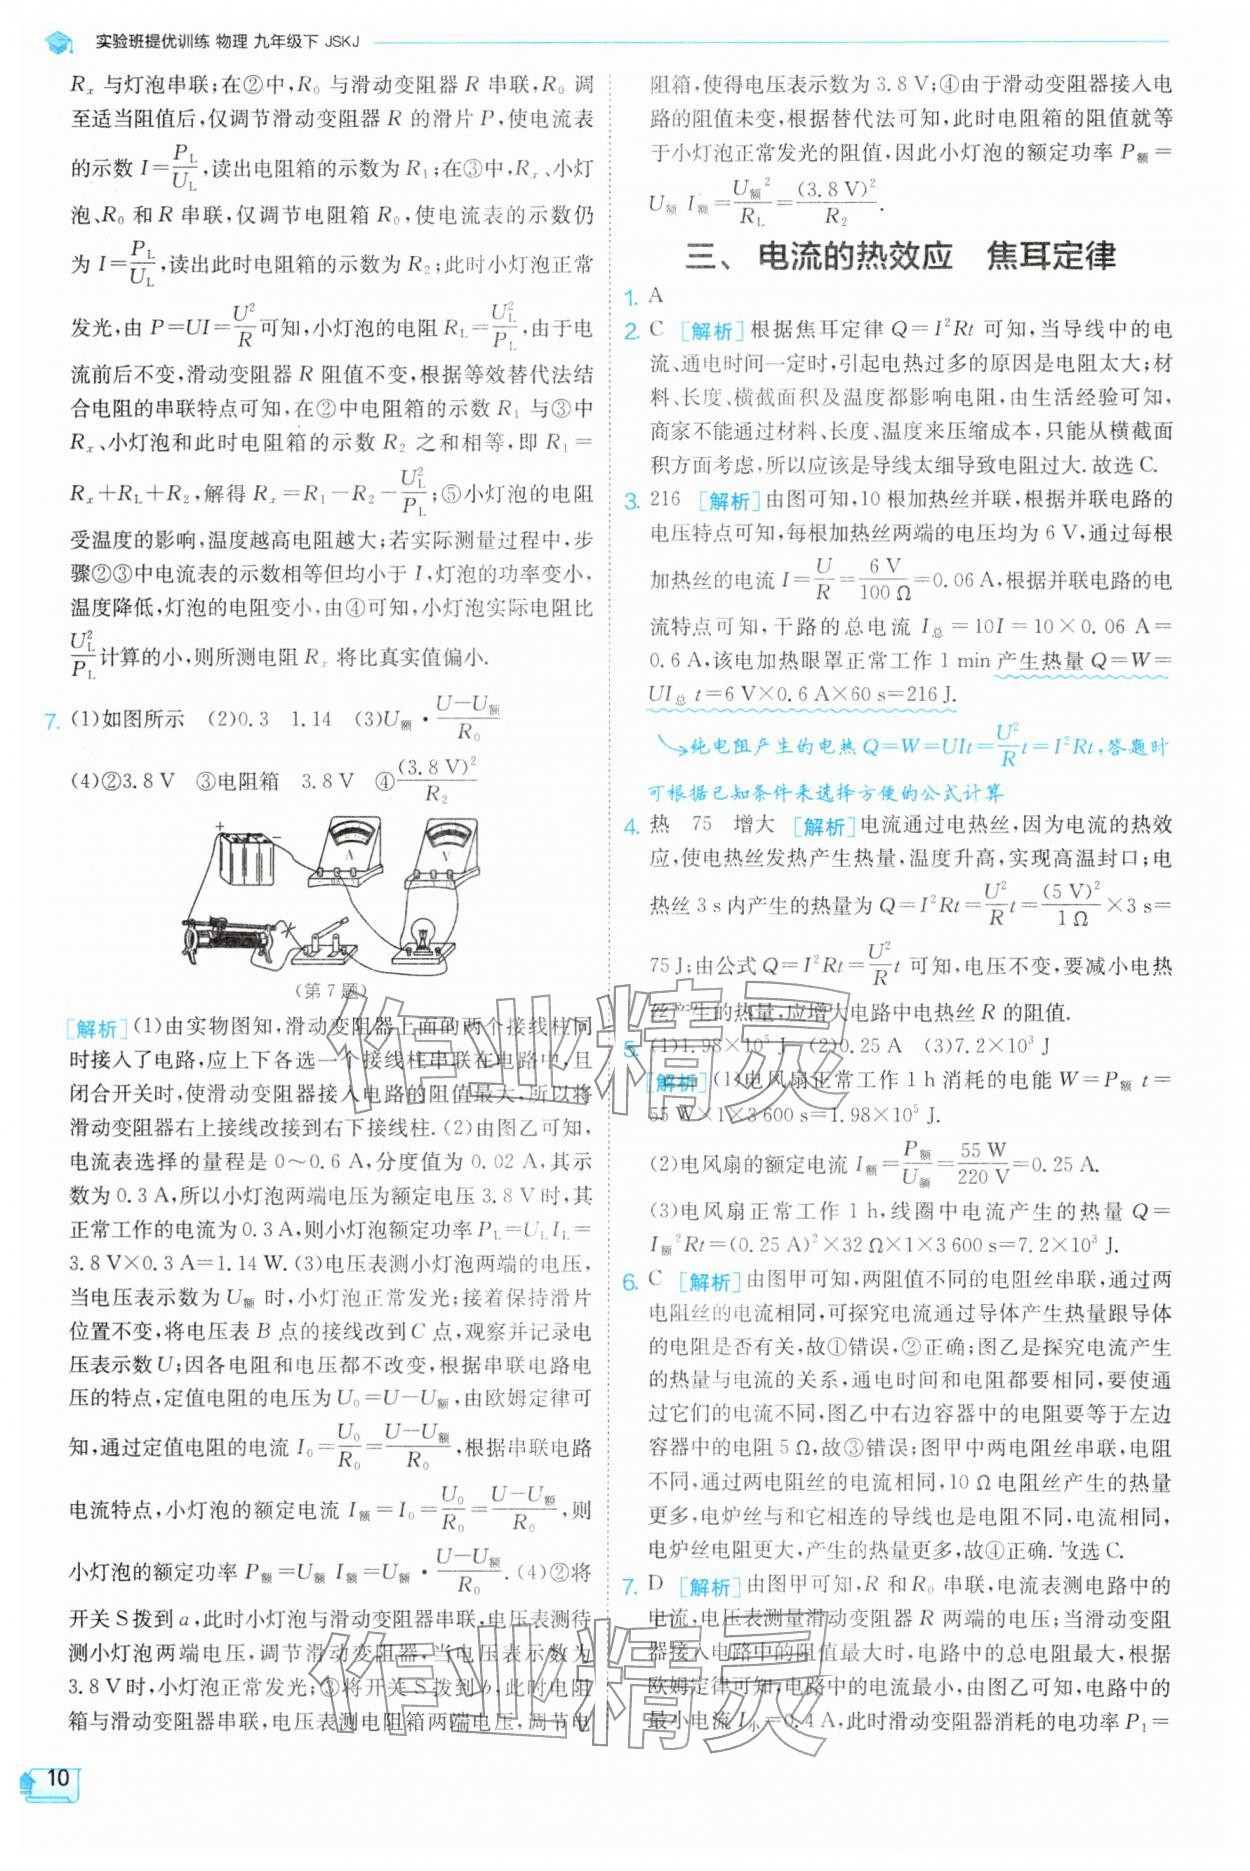 实验班提优训练 物理 九年级下 JSKJ
Rx 与灯泡串联;在②中,R0 与滑动变阻器 R 串联,R0 调
至适当阻值后,仅调节滑动变阻器 R 的滑片 P,使电流表
的示数 I=PL/UL,读出电阻箱的示数为 R1;在③中,Rx、小灯
泡、R0 和 R 串联,仅调节电阻箱 R0,使电流表的示数仍
为 I=PL/UL,读出此时电阻箱的示数为 R2;此时小灯泡正常
发光,由 P=UI=U²/R可知,小灯泡的电阻 RL=UL²/PL,由于电
流前后不变,滑动变阻器 R 阻值不变,根据等效替代法结
合电阻的串联特点可知,在②中电阻箱的示数 R1 与③中
Rx、小灯泡和此时电阻箱的示数 R2 之和相等,即 R1=
Rx+RL+R2,解得 Rx=R1-R2-UL²/PL;⑤小灯泡的电阻
受温度的影响,温度越高电阻越大;若实际测量过程中,步
骤②③中电流表的示数相等但均小于 I,灯泡的功率变小,
温度降低,灯泡的电阻变小,由④可知,小灯泡实际电阻比
UL²/PL计算的小,则所测电阻 Rx 将比真实值偏小.
7. (1)如图所示 (2)0.3 1.14 (3)U额·(U-U额)/R0
(4)②3.8 V ③电阻箱 3.8 V ④(3.8 V)²/R2
+ -
A V
(第 7 题)
[解析](1)由实物图知,滑动变阻器上面的两个接线柱同
时接入了电路,应上下各选一个接线柱串联在电路中,且
闭合开关时,使滑动变阻器接入电路的阻值最大,所以将
滑动变阻器右上接线改接到右下接线柱.(2)由图乙可知,
电流表选择的量程是 0～0.6 A,分度值为 0.02 A,其示
数为 0.3 A,所以小灯泡两端电压为额定电压 3.8 V 时,其
正常工作的电流为 0.3 A,则小灯泡额定功率 PL=ULIL=
3.8 V×0.3 A=1.14 W.(3)电压表测小灯泡两端的电压,
当电压表示数为 U额 时,小灯泡正常发光;接着保持滑片
位置不变,将电压表 B 点的接线改到 C 点,观察并记录电
压表示数 U;因各电阻和电压都不改变,根据串联电路电
压的特点,定值电阻的电压为 U0=U-U额,由欧姆定律可
知,通过定值电阻的电流 I0=U0/R0=(U-U额)/R0,根据串联电路
电流特点,小灯泡的额定电流 I额=I0=U0/R0=(U-U额)/R0,则
小灯泡的额定功率 P额=U额 I额=U额·(U-U额)/R0.(4)②将
开关 S 拨到 a,此时小灯泡与滑动变阻器串联,电压表测待
测小灯泡两端电压,调节滑动变阻器,当电压表示数为
3.8 V 时,小灯泡正常发光;③将开关 S 拨到 b,此时电阻
箱与滑动变阻器串联,电压表测电阻箱两端电压.调节电
阻箱,使得电压表示数为 3.8 V;④由于滑动变阻器接入电
路的阻值未变,根据替代法可知,此时电阻箱的阻值就等
于小灯泡正常发光的阻值,因此小灯泡的额定功率 P额=
U额 I额=U额²/RL=(3.8 V)²/R2.
三、 电流的热效应 焦耳定律
1. A
2. C [解析]根据焦耳定律 Q=I²Rt 可知,当导线中的电
流、通电时间一定时,引起电热过多的原因是电阻太大;材
料、长度、横截面积及温度都影响电阻,由生活经验可知,
商家不能通过材料、长度、温度来压缩成本,只能从横截面
积方面考虑,所以应该是导线太细导致电阻过大.故选 C.
3. 216 [解析]由图可知,10 根加热丝并联,根据并联电路的
电压特点可知,每根加热丝两端的电压均为 6 V,通过每根
加热丝的电流 I=U/R=6 V/100 Ω=0.06 A,根据并联电路的电
流特点可知,干路的总电流 I总=10I=10×0.06 A=
0.6 A,该电加热眼罩正常工作 1 min 产生热量 Q=W=
UI总 t=6 V×0.6 A×60 s=216 J.
纯电阻产生的电热 Q=W=UIt=U²/R t=I²Rt,答题时
可根据已知条件来选择方便的公式计算
4. 热 75 增大 [解析]电流通过电热丝,因为电流的热效
应,使电热丝发热产生热量,温度升高,实现高温封口;电
热丝 3 s 内产生的热量为 Q=I²Rt=U²/R t=(5 V)²/1 Ω×3 s=
75 J;由公式 Q=I²Rt=U²/R t 可知,电压不变,要减小电热
丝产生的热量,应增大电路中电热丝 R 的阻值.
5. (1)1.98×10⁵ J (2)0.25 A (3)7.2×10³ J
[解析](1)电风扇正常工作 1 h 消耗的电能 W=P额 t=
55 W×1×3 600 s=1.98×10⁵ J.
(2)电风扇的额定电流 I额=P额/U额=55 W/220 V=0.25 A.
(3)电风扇正常工作 1 h,线圈中电流产生的热量 Q=
I额²Rt=(0.25 A)²×32 Ω×1×3 600 s=7.2×10³ J.
6. C [解析]由图甲可知,两阻值不同的电阻丝串联,通过两
电阻丝的电流相同,可探究电流通过导体产生热量跟导体
的电阻是否有关,故①错误,②正确;图乙是探究电流产生
的热量与电流的关系,通电时间和电阻都要相同,要使通
过它们的电流不同,图乙中右边容器中的电阻要等于左边
容器中的电阻 5 Ω,故③错误;图甲中两电阻丝串联,电阻
不同,通过两电阻丝的电流相同,10 Ω 电阻丝产生的热量
更多,电炉丝与和它相连的导线也是电阻不同,电流相同,
电炉丝电阻更大,产生的热量更多,故④正确.故选 C.
7. D [解析]由图甲可知,R 和 R0 串联,电流表测电路中的
电流,电压表测量滑动变阻器 R 两端的电压;当滑动变阻
器接入电路中的阻值最大时,电路中的总电阻最大,根据
欧姆定律可知,电路中的电流最小,由图乙可知,电路中的
最小电流 I小=0.4 A,此时滑动变阻器消耗的电功率 P1=
10
作业精灵
作业精灵